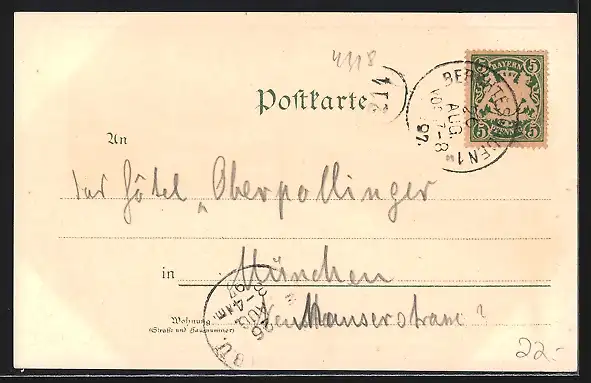 4118
BAYERN
5 5
5 5
PFENNIG
BERCHTESGADEN 1
26
AUG.
VOR. 7-8
97.
Postkarte
An
das Hôtel „Oberpollinger
in München
Wohnung
(Straße und Hausnummer)
Neuhauserstrasse ?
26
AUG
3-4
97
22.-